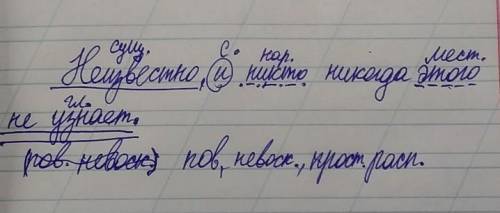 сущ. с. нар. мест.
Неизвестно, и никто никогда этого
гл.
не узнает.
(пов. невоск.) пов, невоск., прост. расп.